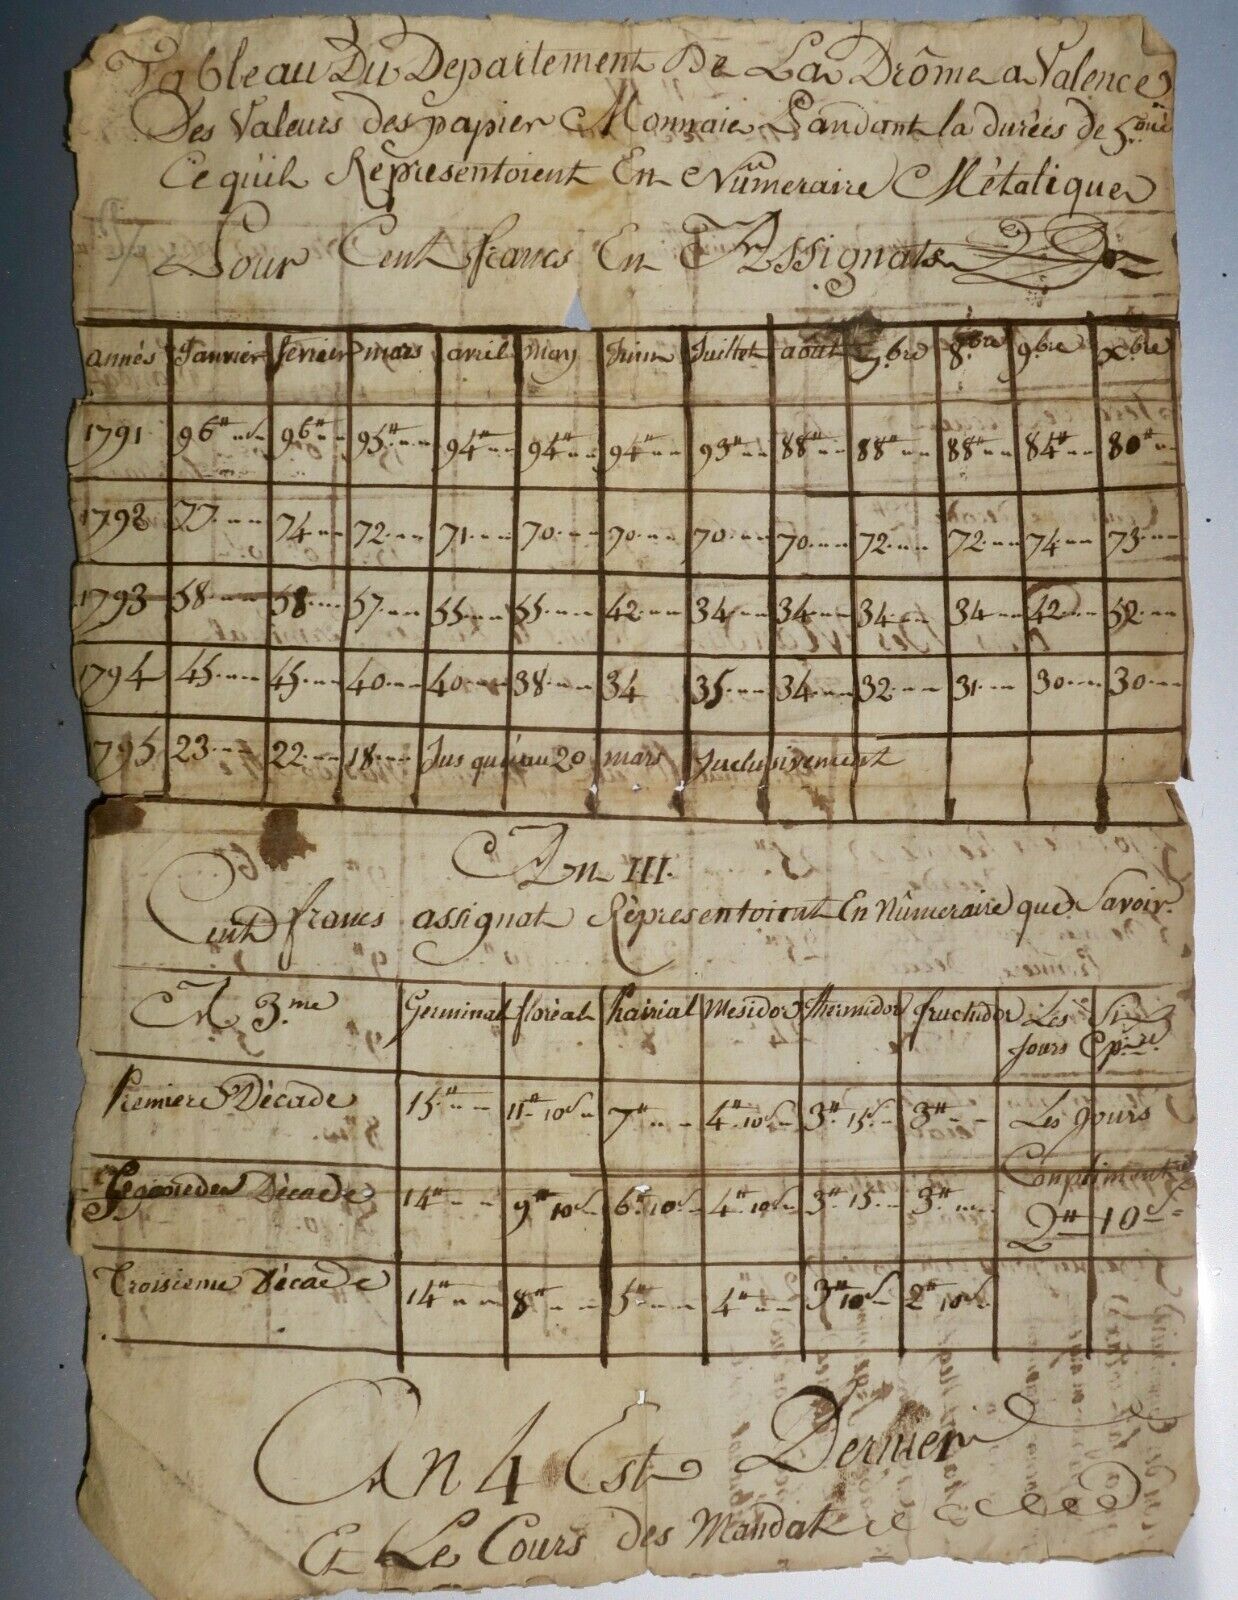 Tableau Du Departement De La Drôme a Valence
Des Valeurs des papier Monnaie Pandant la durées de
Ce quil Réprésentoient En Nûmeraire Métalique
Pour Cent francs En Assignats
annés Janvier fevrier mars avril may Juin Juillet aout 7.bre 8.bre 9.bre x.bre
1791 96# 96# 95# 94# 94# 94# 93# 88# 88# 88# 84# 80#
1792 77 74 72 71 70 70 70 70 72 72 74 73
1793 58 58 57 55 55 42 34 34 34 34 42 52
1794 45 45 40 40 38 34 35 34 32 31 30 30
1795 23 22 18 Jusquéau 20 mars Inclusivement
An III.
Cent francs assignat Réprésentoient En Nûmeraire que Savoir
A 3.me Germinal floréal Prairial Mesidor Thermidor fructidor Les
Jours
Premiere Décade 15# 11# 10s 7# 4# 10s 3# 15s 3# Les Jours
Segonde Décade 14# 9# 10s 6# 10s 4# 10s 3# 15 3# Complimentre
2# 10s
Troisieme Décade 14# 8# 5# 4# 3# 10s 2# 10s
An 4 Est Dernier
Et Le Cours des Mandat